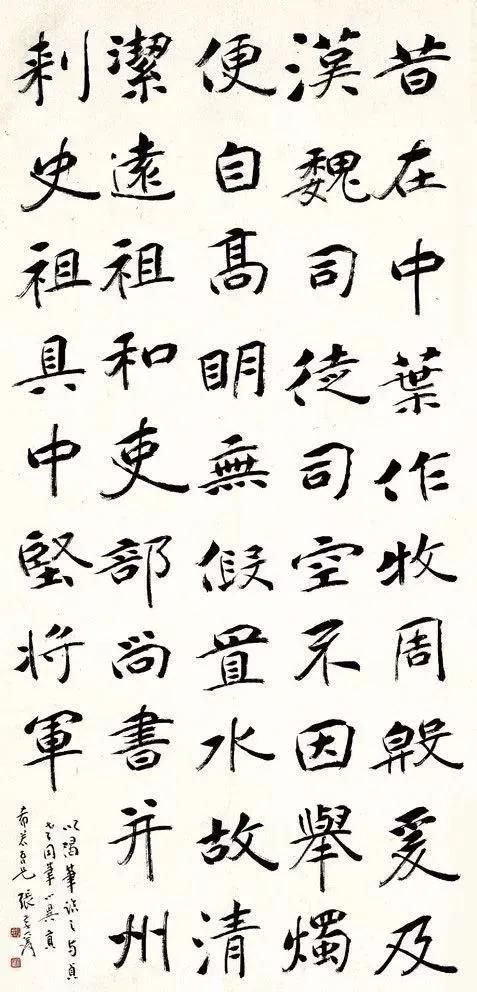 昔在中葉作牧周殷爰及
漢魏司徒司空不因舉燭
便自高明無假置水故清
潔遠祖和吏部尚書并州
刺史祖具中堅將軍
以渴筆臨之与貞
同筆異真
張爰